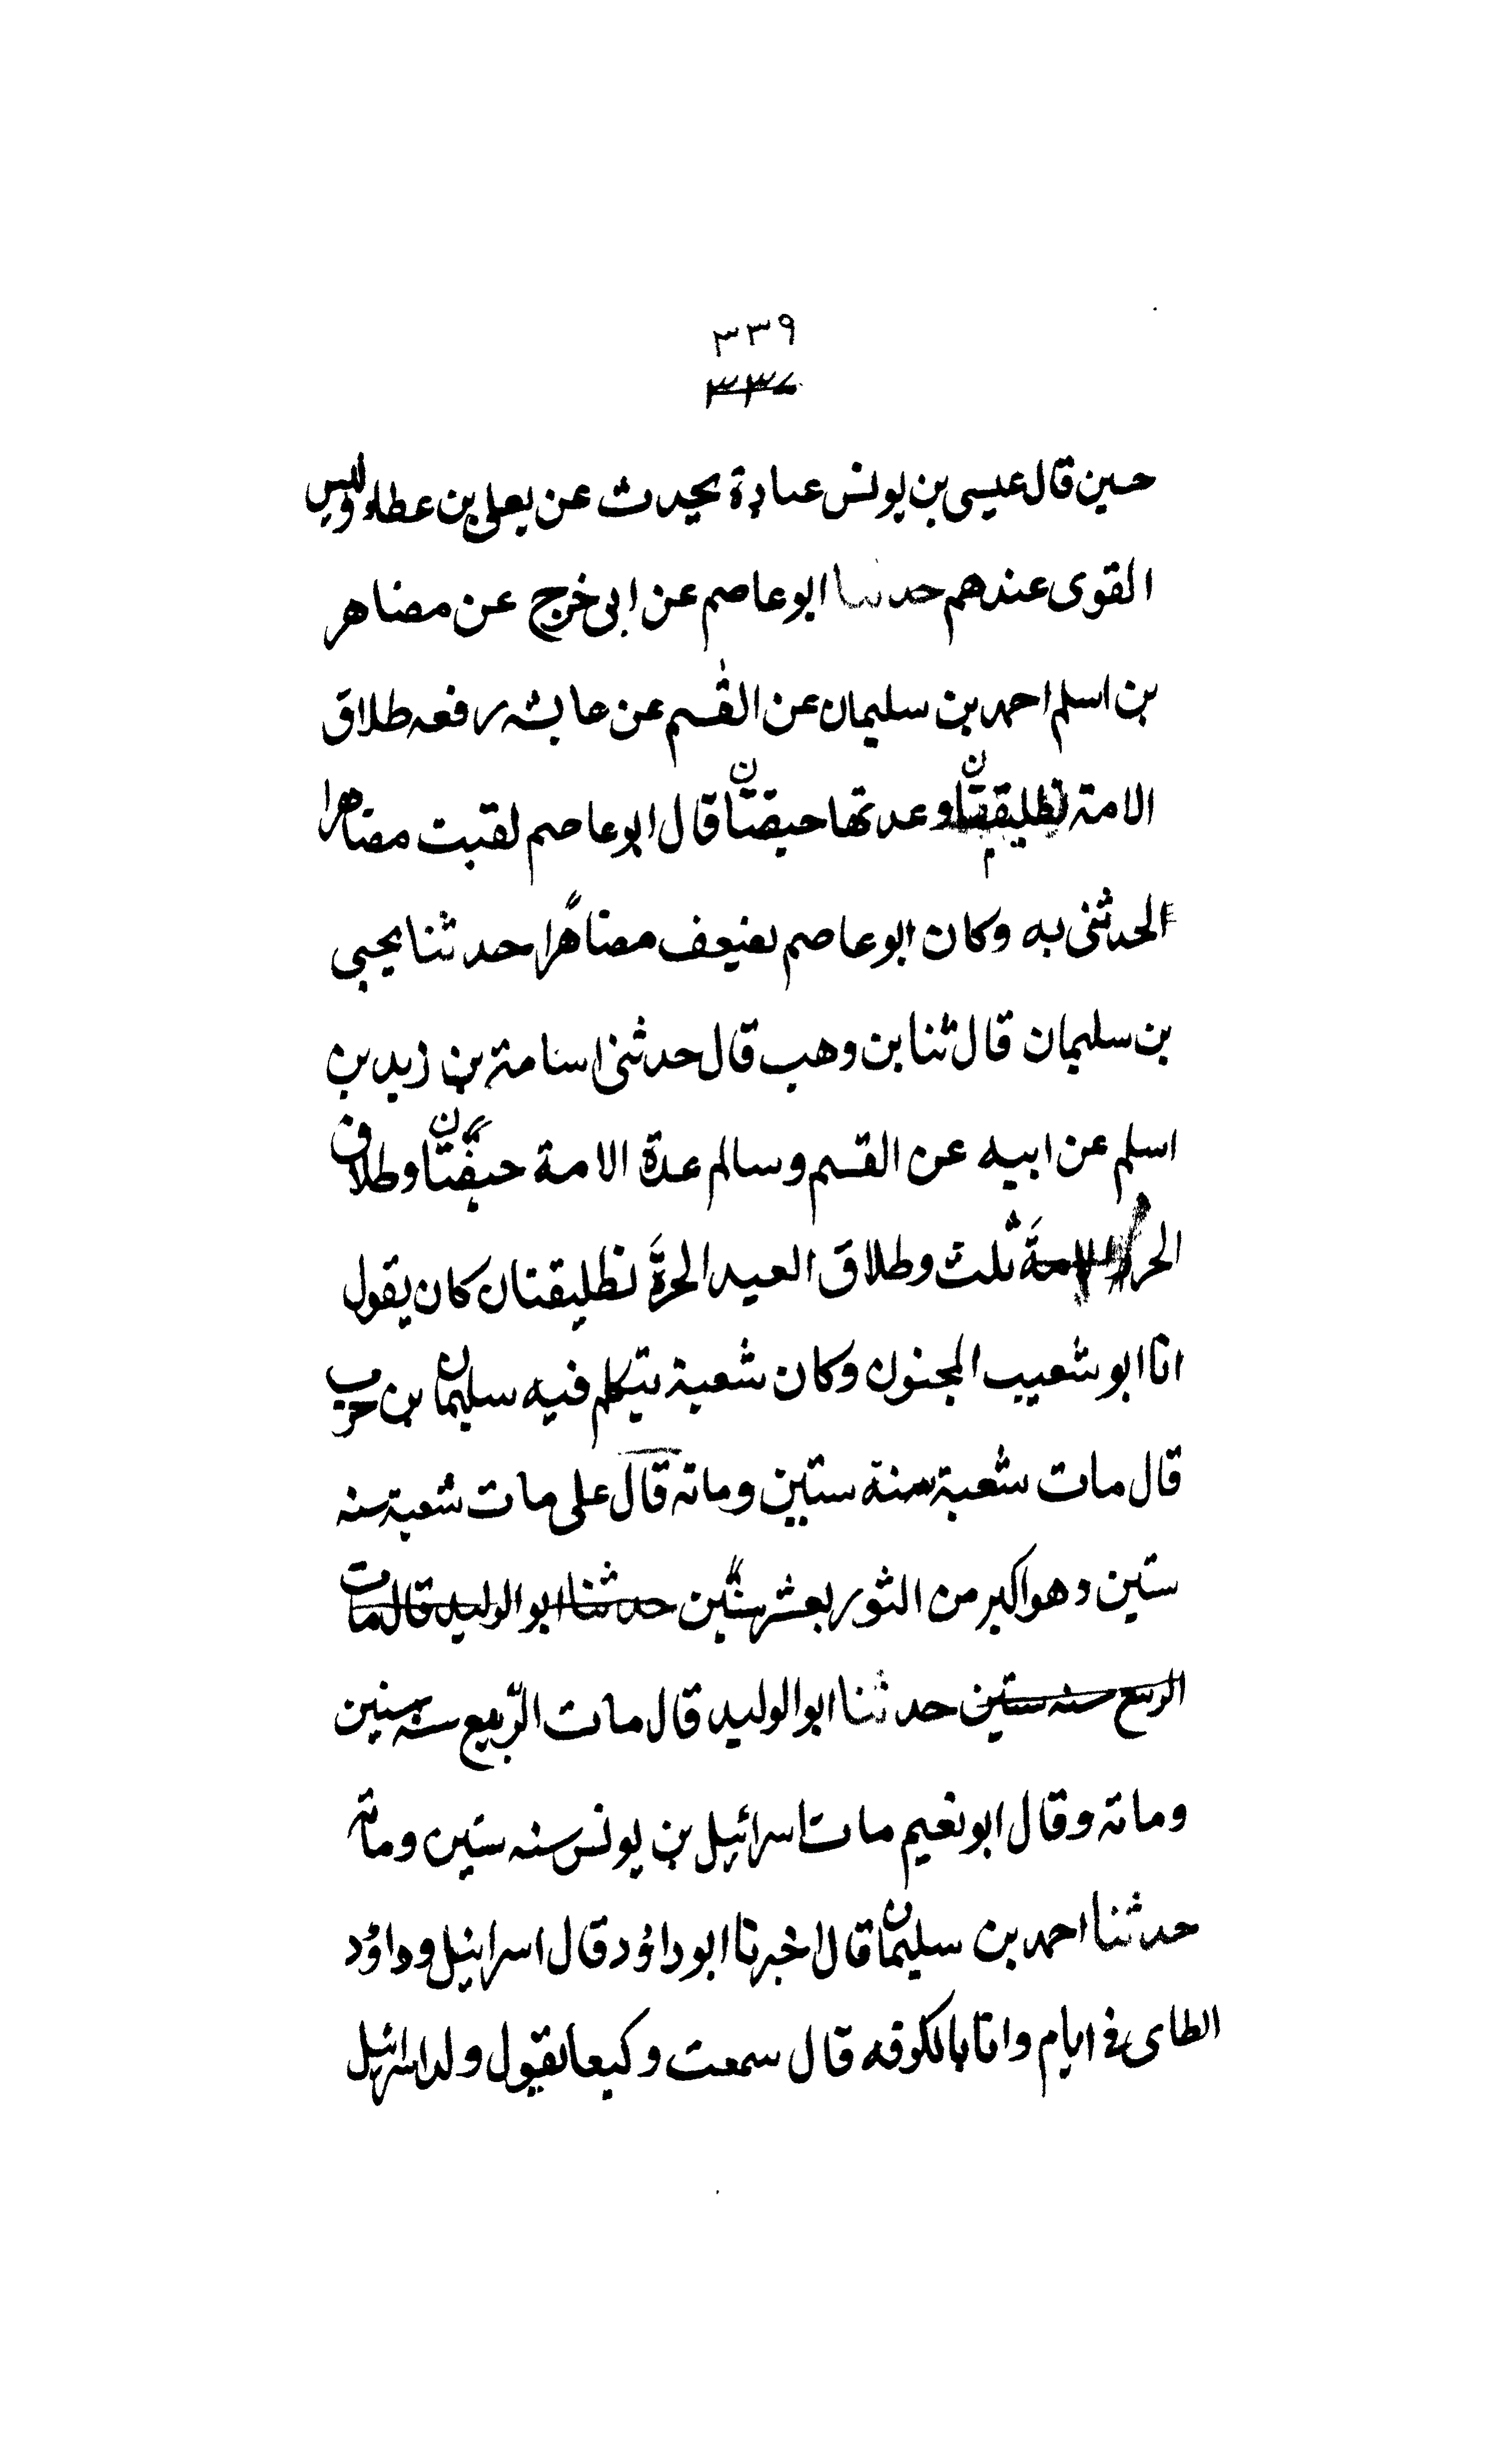 ٣٣٩
٣٣٧
حسين قال عيسى بن يونس عبادة يحدث عن يعلى بن عطاء وليس
القوى عندهم حدثنا ابو عاصم عن ابى خرج عن مضاهر
بن اسلم احمد بن سليمان عن القسم عن عايشه رفعه طلاق
الامة تطليقتان وعدتها حيضتان قال ابو عاصم لقيت مضاهرا
الحدثنى به وكان ابو عاصم يضيعف مضاهرا حدثنا يحيى
بن سليمان قال ثنا بن وهب قال حدثنى اسامة بن زيد بن
اسلم عن ابيه عن القسم وسالم عدة الامة حيضتان وطلاق
الحر الامة ثلث وطلاق العبد الحرة تطليقتان كان يقول
انا ابو شعيب المجنون وكان شعبة يتكلم فيه سليمان بن حرب
قال مات شعبة سنة ستين وماته قال على مات شعبة سنه
ستين وهو اكبر من الثور بعشر سنين حدثنا ابو الوليد قال مات
الربيع سنه ستين حدثنا ابو الوليد قال مات الربيع سنه سنين
وماته وقال ابو نعيم مات اسرائيل بن يونس سنه ستين وماته
حدثنا احمد بن سليمان قال اخبرنا ابو داؤد قال اسرائيل وداؤد
الطاى فى ايام وانا بالكوفه قال سمعت وكيعا يقول ولد اسرائيل